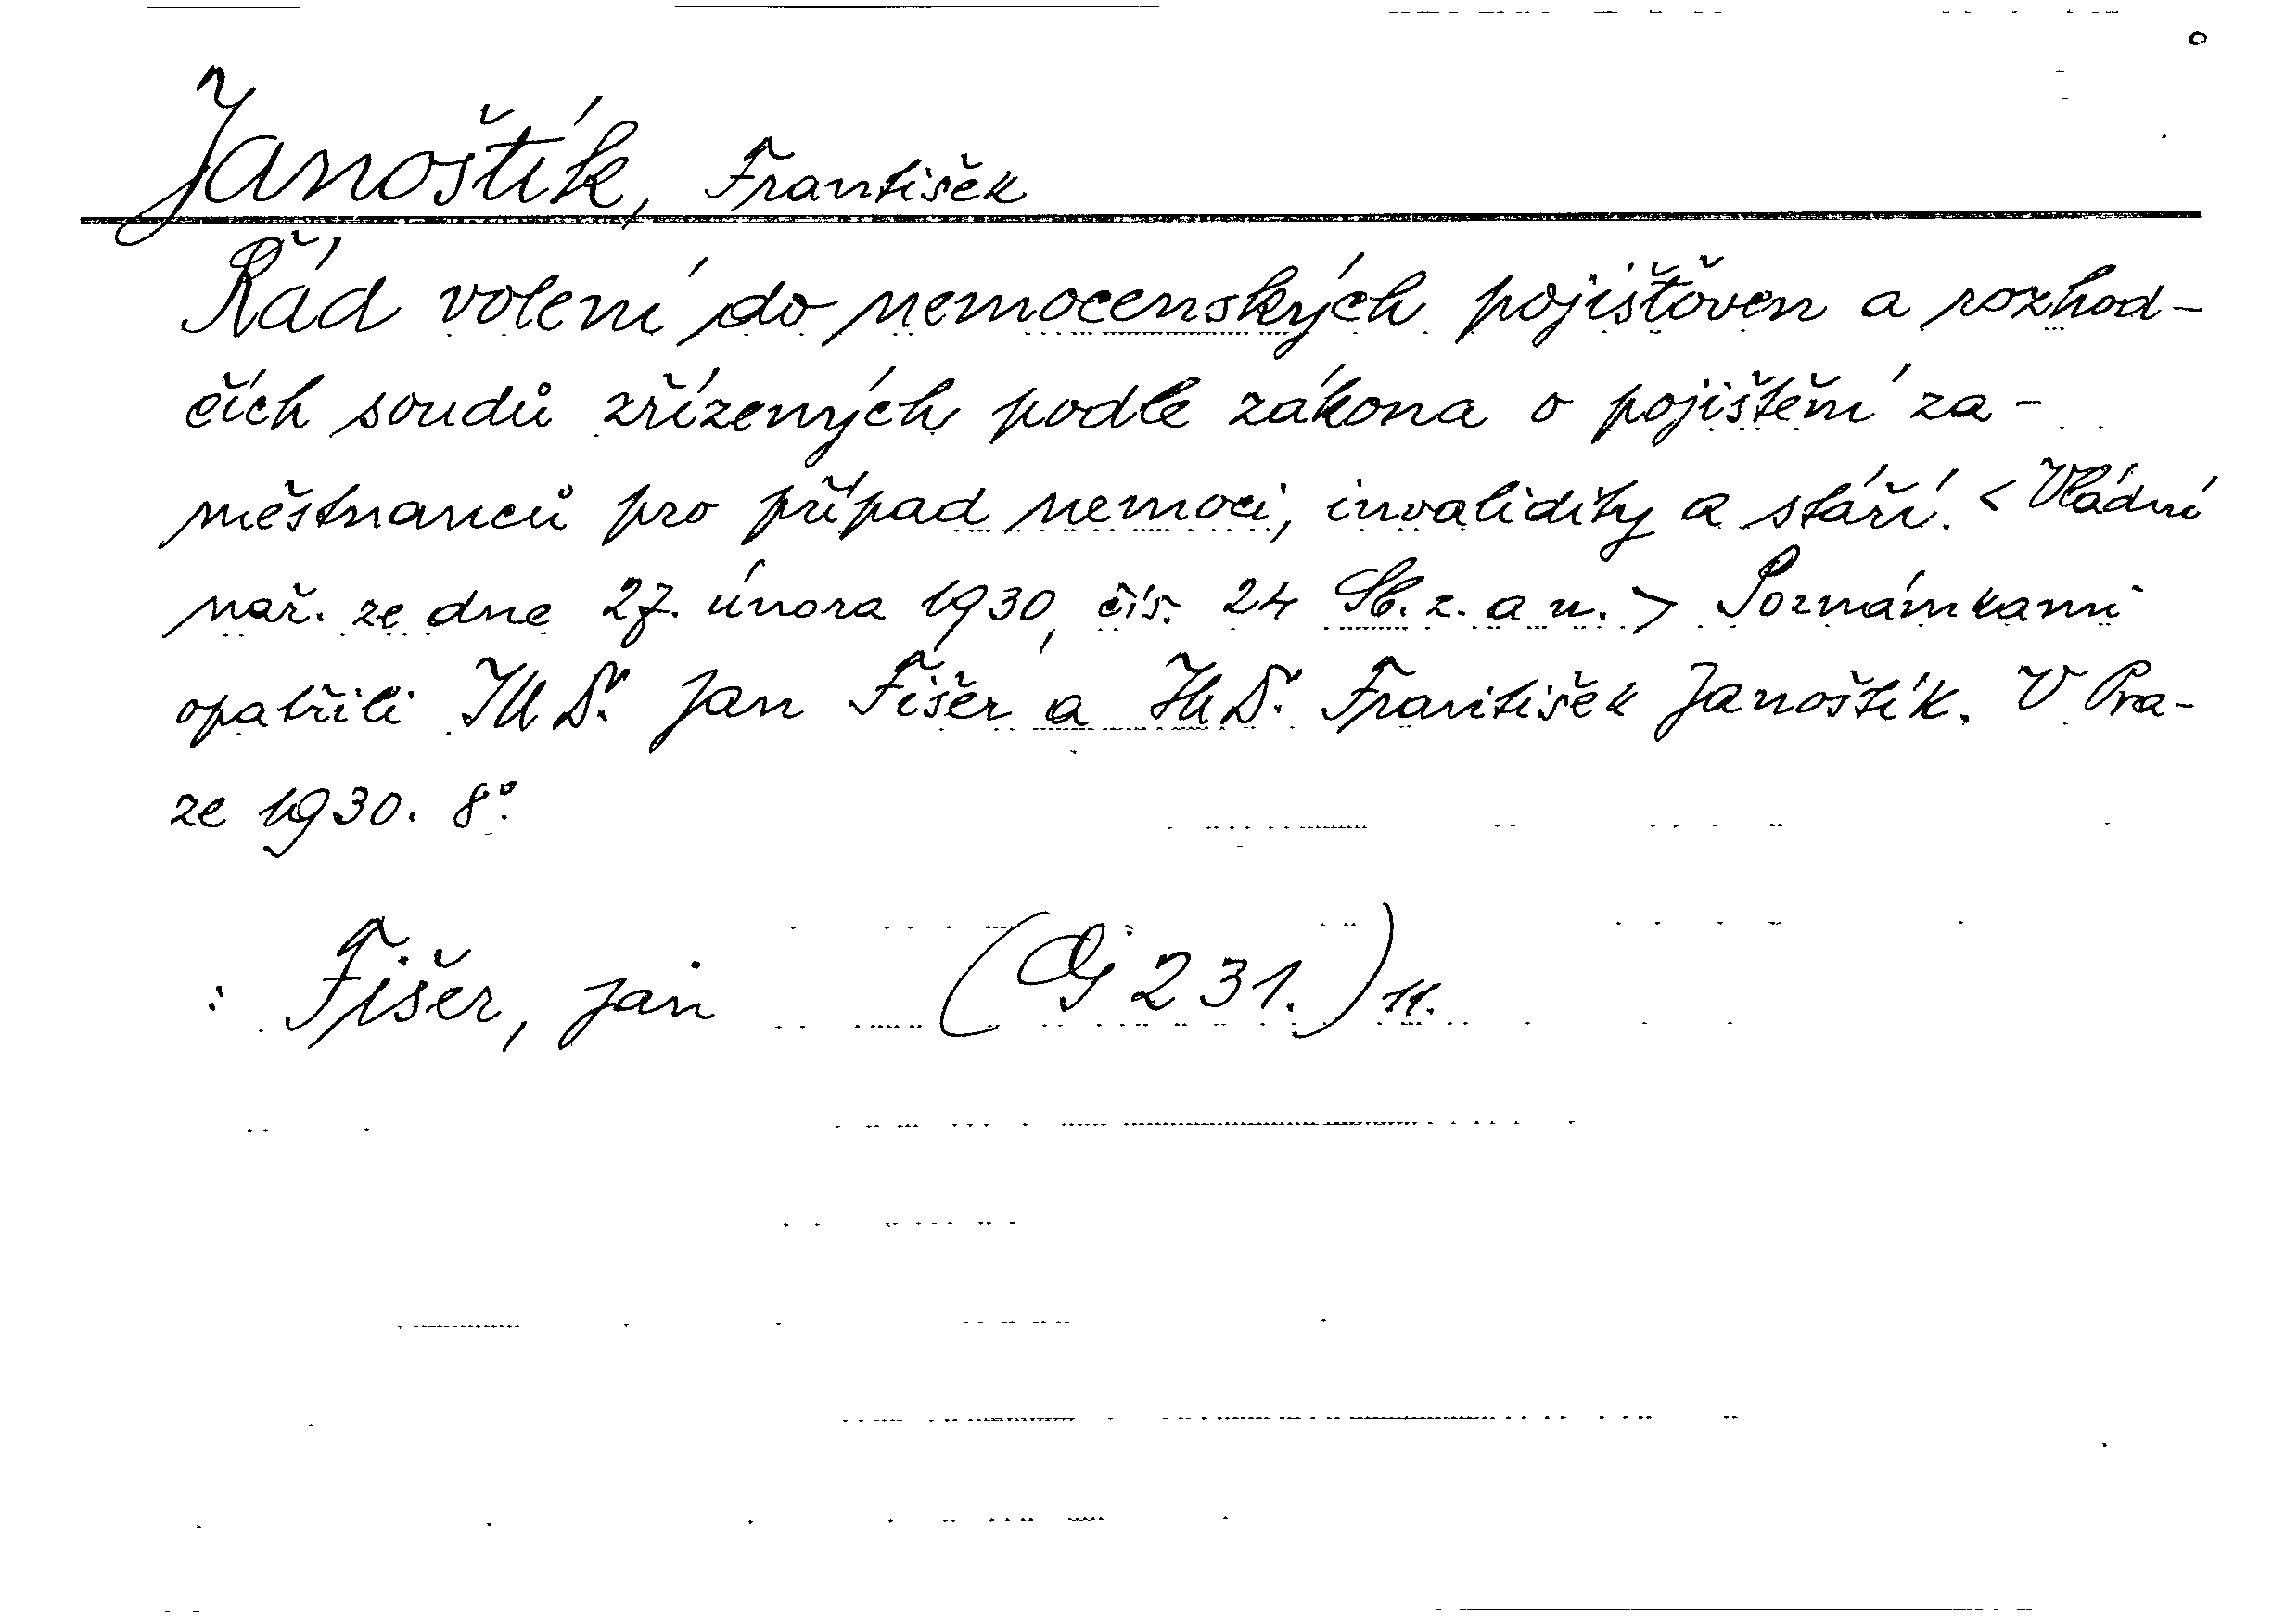 Janoštík, František
Řád volení do nemocenských pojišťoven a rozhod-
čích soudů zřízených podle zákona o pojištění za-
městnanců pro případ nemoci, invalidity a stáří. < Vládní
nař. ze dne 27. února 1930, čís. 24 Sb. z. a n. > Poznámkami
opatřili JUDr. Jan Fišer a JUDr. František Janoštík. V Pra-
ze 1930. 8°.
: Fišer, Jan (Og 231.) 11.